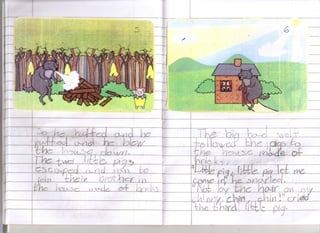 5
So he huffed and he
puffed and he blew
the house down.
The two little pigs
escaped and ran to
join their brother in
the house made of bricks
6
The big bad wolf
followed the pigs to
the house made of
bricks.
"Little pig, little pig let me
come in" he snarled.
"Not by the hair on my
chinny chin, chin!" cried
the third little pig.